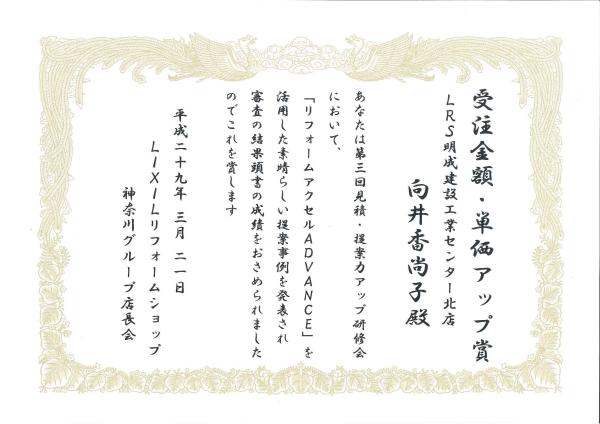 受注金額・単価アップ賞
LRS明成建設工業センター北店
向井香尚子殿
あなたは第三回見積・提案力アップ研修会
において、
「リフォームアクセルADVANCE」を
活用した素晴らしい提案事例を発表され
審査の結果頭書の成績をおさめられました
のでこれを賞します
平成二十九年 三月 二一日
LIXILリフォームショップ
神奈川グループ店長会